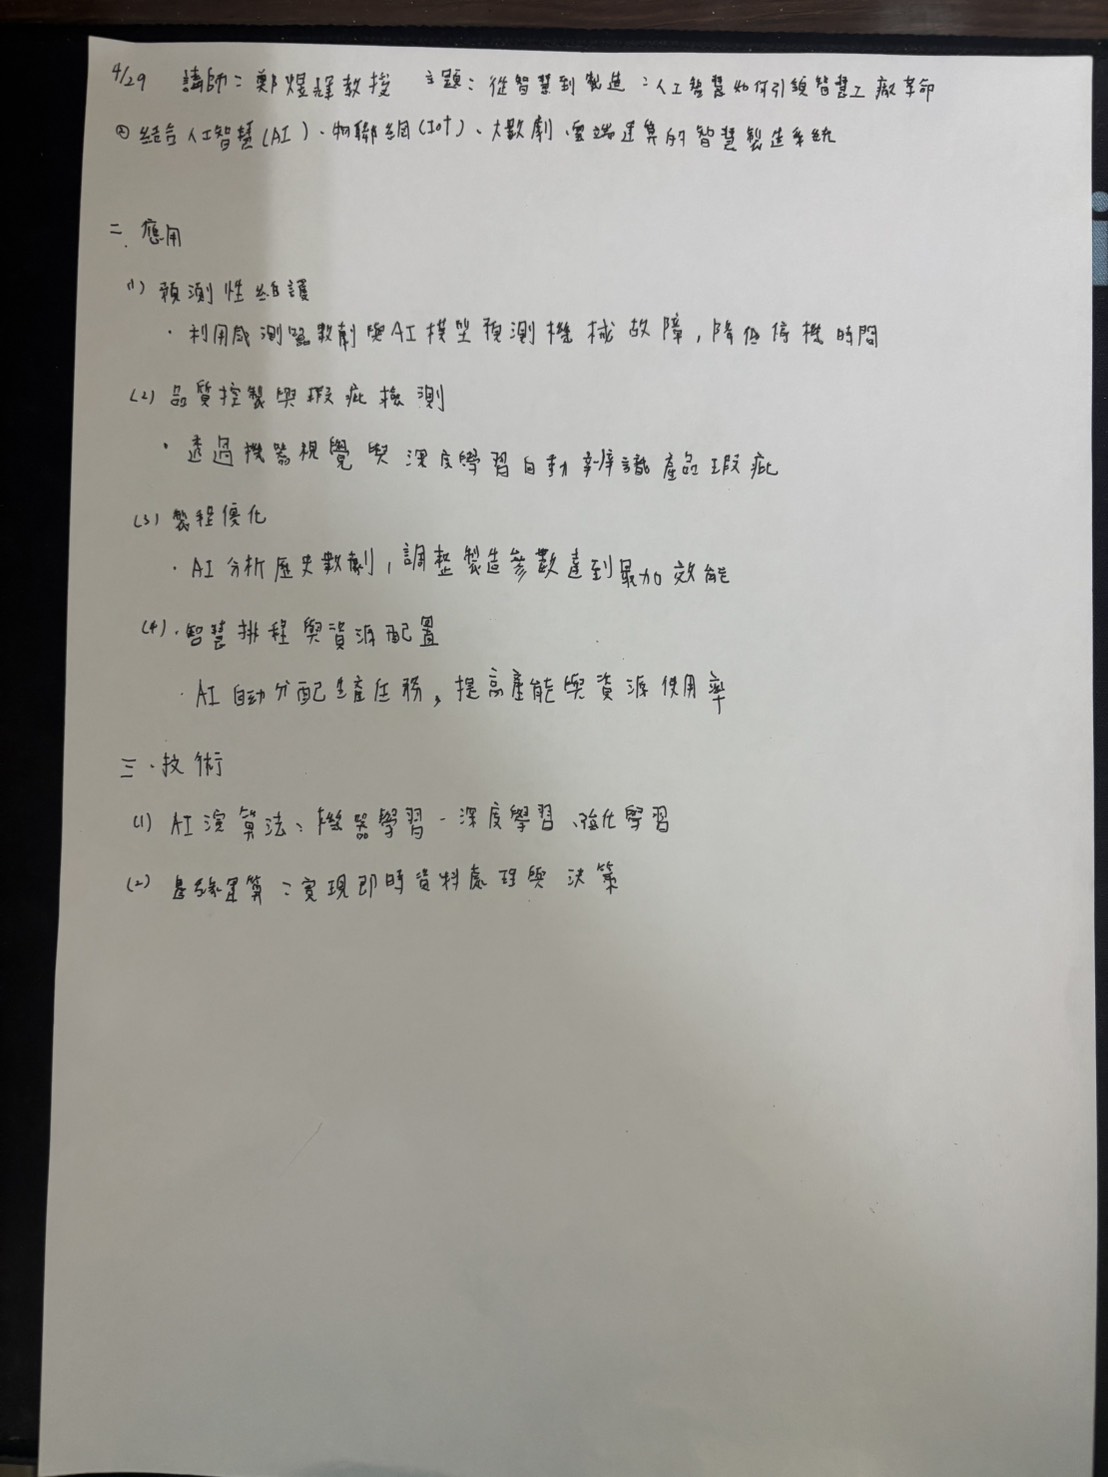 4/29 講師：鄭煜輝教授 主題：從智慧到製造：人工智慧如何引領智慧工廠革命
結合人工智慧(AI)、物聯網(Iot)、大數劇、雲端運算的智慧製造系統
二、應用
(1) 預測性維護
· 利用感測器數劇與AI模型預測機械故障，降低停機時間
(2) 品質控製與瑕疵檢測
· 透過機器視覺與深度學習自動辨識產品瑕疵
(3) 製程優化
· AI分析歷史數劇，調整製造參數達到最加效能
(4)、智慧排程與資源配置
· AI自動分配生產任務，提高產能與資源使用率
三、技術
(1) AI演算法：機器學習、深度學習、強化學習
(2) 邊緣運算：實現即時資料處理與決策